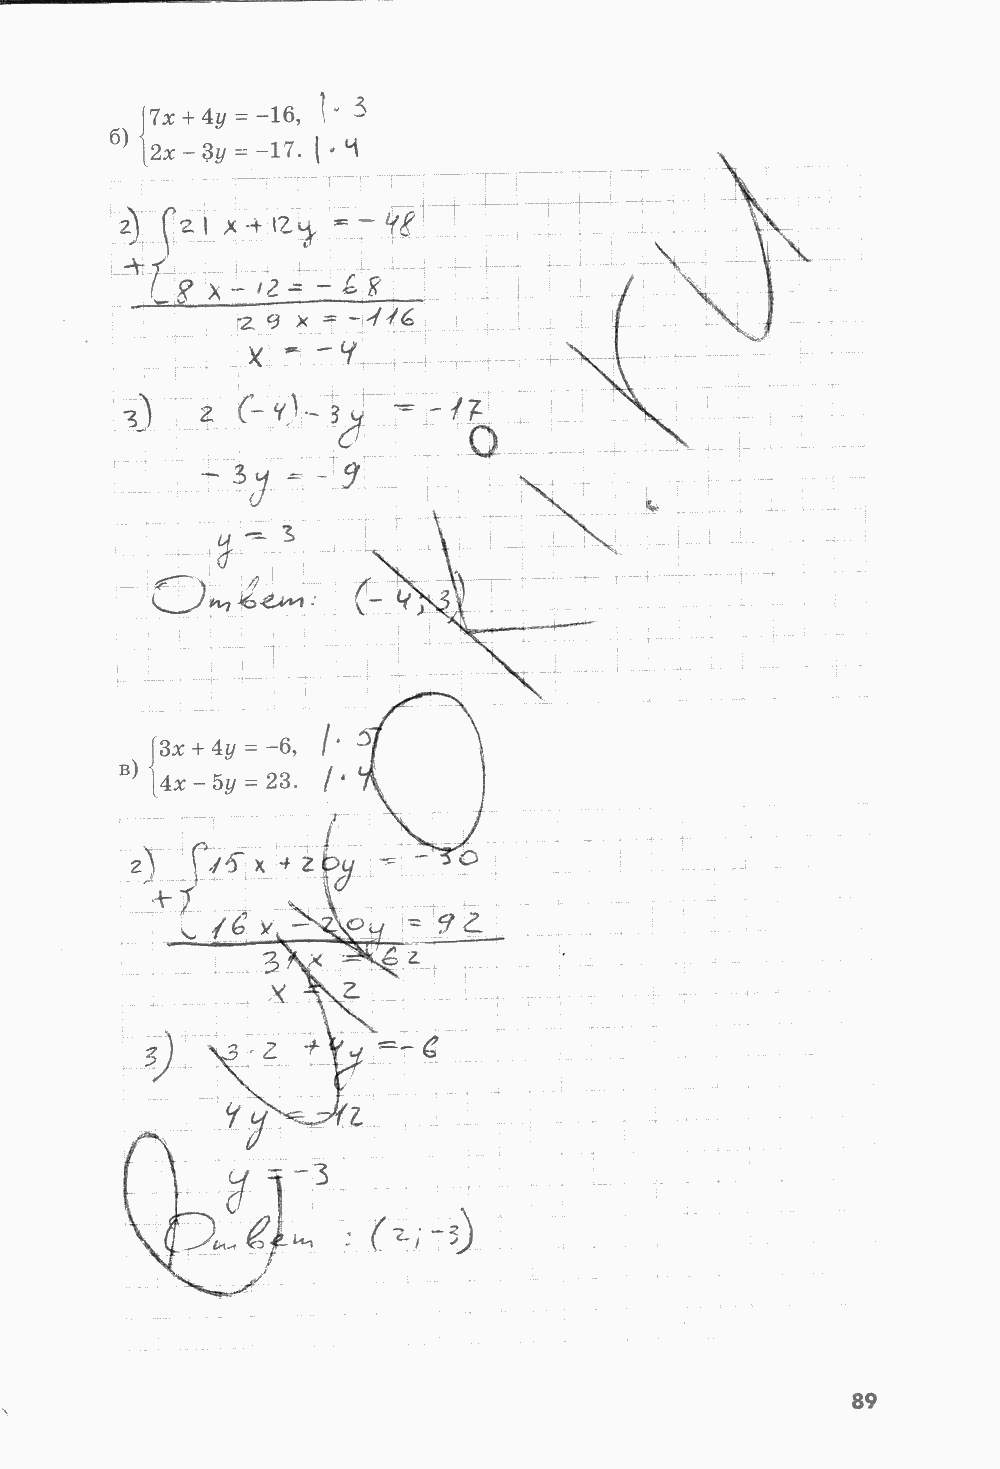 б) {7x + 4y = –16, | · 3
2x – 3y = –17. | · 4
2) {21x + 12y = –48
+ 8x – 12 = –68
29x = –116
x = –4
3) 2(–4) – 3y = –17
–3y = –9
y = 3
Ответ: (–4; 3)
в) {3x + 4y = –6, | · 5
4x – 5y = 23. | · 4
2) {15x + 20y = –30
+ 16x – 20y = 92
31x = 62
x = 2
3) 3 · 2 + 4y = –6
4y = –12
y = –3
Ответ: (2; –3)
89